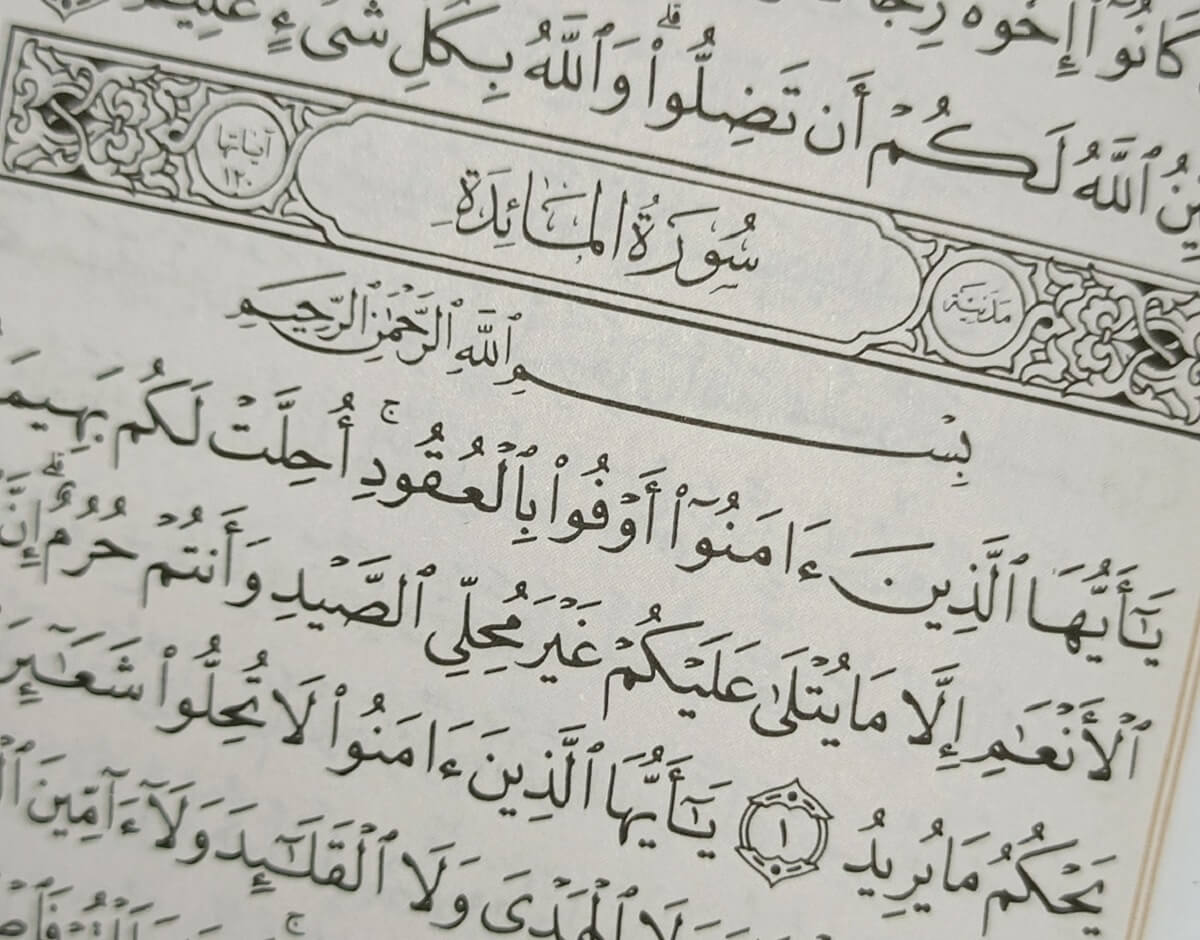 كَانُوٓا۟ إِخْوَةً
ٱللَّهُ لَكُمْ أَن تَضِلُّوا۟ ۗ وَٱللَّهُ بِكُلِّ شَىْءٍ عَلِيمٌ
مَدَنِيَّة
سُورَةُ المَائِدَةِ
آيَاتُهَا ١٢٠
بِسْمِ ٱللَّهِ ٱلرَّحْمَٰنِ ٱلرَّحِيمِ
يَٰٓأَيُّهَا ٱلَّذِينَ ءَامَنُوٓا۟ أَوْفُوا۟ بِٱلْعُقُودِ ۚ أُحِلَّتْ لَكُم
ٱلْأَنْعَٰمِ إِلَّا مَا يُتْلَىٰ عَلَيْكُمْ غَيْرَ مُحِلِّى ٱلصَّيْدِ وَأَنتُمْ حُرُمٌ ۗ إِنَّ
يَحْكُمُ مَا يُرِيدُ ١ يَٰٓأَيُّهَا ٱلَّذِينَ ءَامَنُوا۟ لَا تُحِلُّوا۟ شَعَٰٓئِرَ
ٱلْهَدْىَ وَلَا ٱلْقَلَٰٓئِدَ وَلَآ ءَآمِّينَ